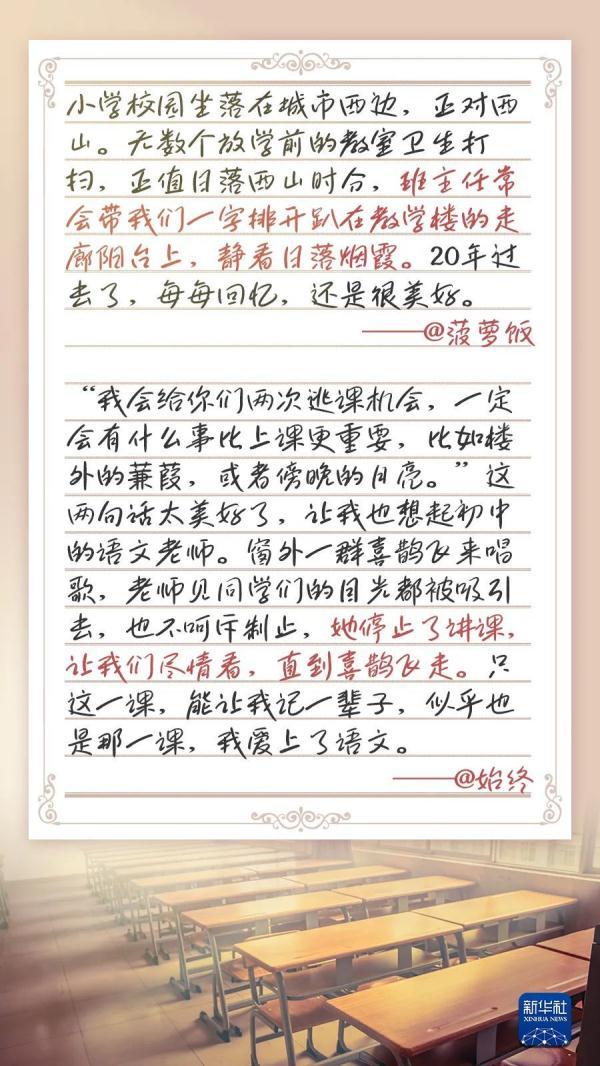 小学校园坐落在城市西边，正对西
山。无数个放学前的教室卫生打
扫，正值日落西山时分，班主任常
会带我们一字排开趴在教学楼的走
廊阳台上，静看日落烟霞。20年过
去了，每每回忆，还是很美好。
——@菠萝饭
“我会给你们两次逃课机会，一定
会有什么事比上课更重要，比如楼
外的蒹葭，或者傍晚的月亮。”这
两句话太美好了，让我也想起初中
的语文老师。窗外一群喜鹊飞来唱
歌，老师见同学们的目光都被吸引
去，也不呵斥制止，她停止了讲课，
让我们尽情看，直到喜鹊飞走。只
这一课，能让我记一辈子，似乎也
是那一课，我爱上了语文。
——@始终
新华社
XINHUA NEWS